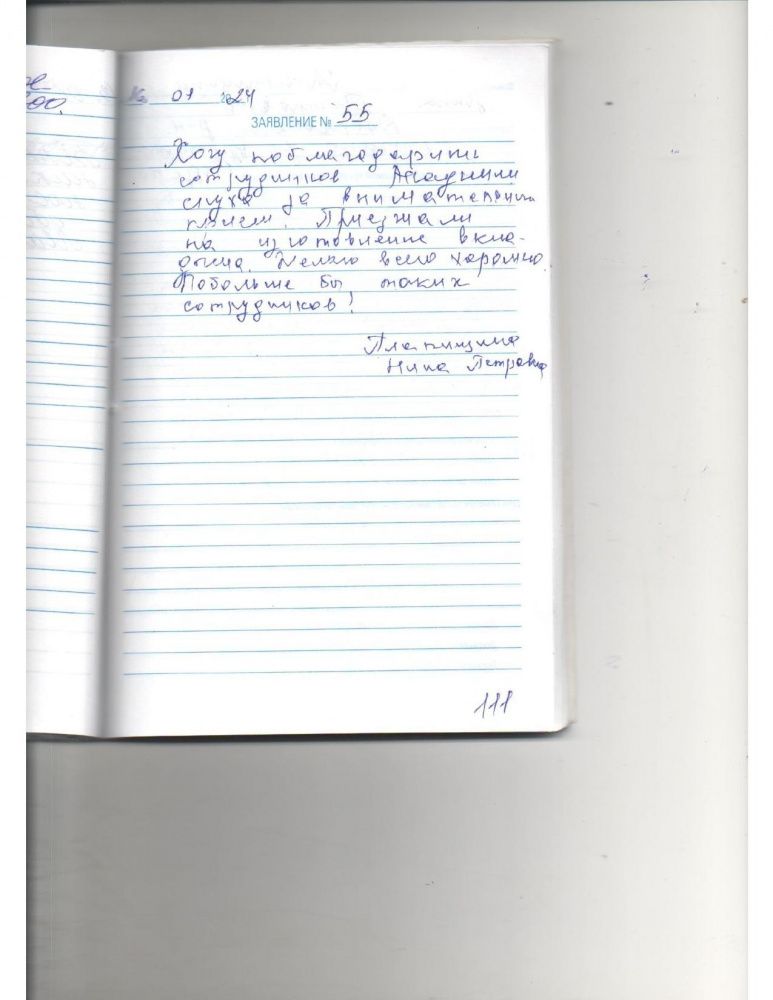 16 01 2024
ЗАЯВЛЕНИЕ № 55
Хочу поблагодарить
сотрудников Академии
слуха за внимательный
прием. Приезжали
на изготовление вкла-
дыша. Желаю всего хорошего.
Побольше бы таких
сотрудников!
Нина Петровна
111